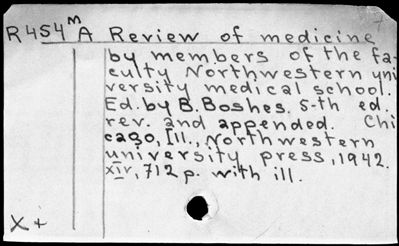 7
R454ᵐ A Review of medicine
by members of the fa-
culty Northwestern uni
versity medical school.
Ed. by B. Boshes. 5-th ed.
rev. and appended. Chi
cago, Ill., Northwestern
university press, 1942.
XIV, 712 p. with ill.
X+